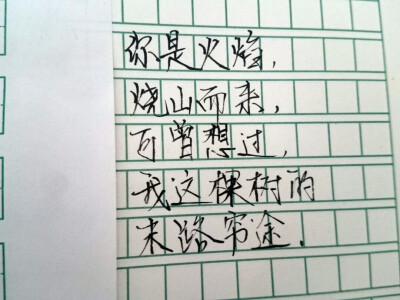 你是火焰，
烧山而来，
可曾想过，
我这棵树的
末路穷途.